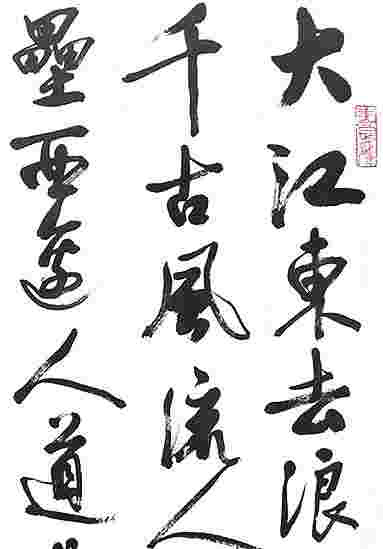 大江東去浪
千古風流人
壘西邊人道